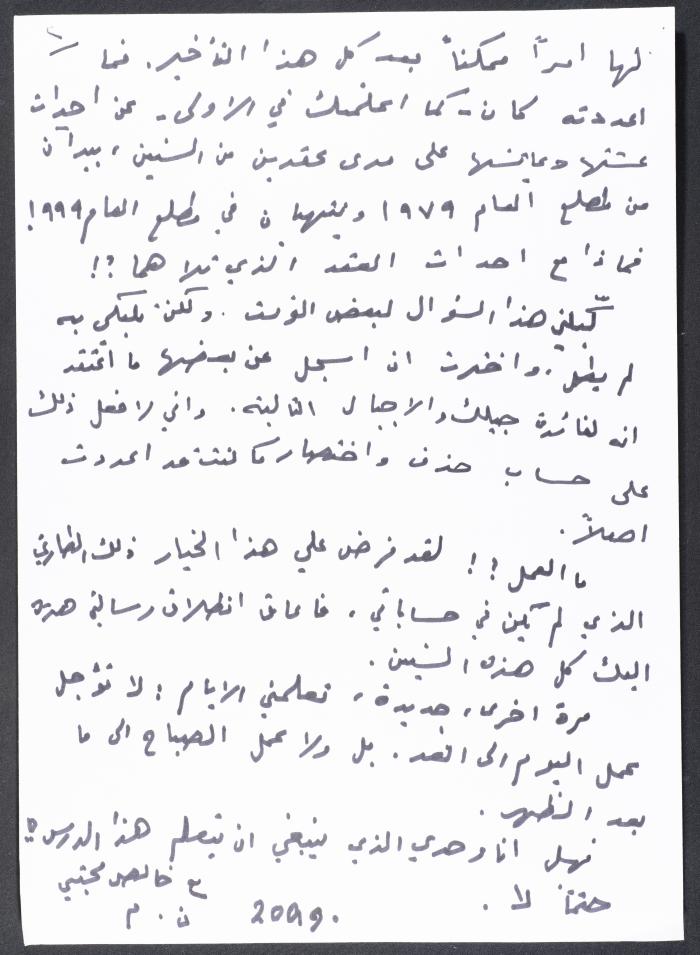 لها امراً ممكناً بعد كل هذا التأخير. فما
اعددته كان - كما اعلمتك في الاولى - عن احداث
عشتها وعايشتها على مدى عقدين من السنين، يبدآن
من مطلع العام ١٩٧٩ وينتهيان في مطلع العام ١٩٩٩!
فماذا مع احداث العقد الذي تلاهما؟!
كبّلني هذا السؤال لبعض الوقت. ولكن تلبكي به
لم يطل. واخترت ان اسجل عن بعضها ما اعتقد
انه لفائدة جيلك والاجيال التالية. واني لافعل ذلك
على حساب حذف واختصار ما كنت قد اعددت
اصلاً.
ما العمل؟! لقد فرض علي هذا الخيار ذلك الطارئ
الذي لم يكن في حساباتي، فاعاق انطلاق رسالتي هذه
اليك كل هذه السنين.
مرة اخرى، جديدة، تعلمني الايام: لا تؤجل
عمل اليوم الى الغد. بل ولا عمل الصباح الى ما
بعد الظهر.
فهل انا وحدي الذي ينبغي ان يتعلم هذا الدرس؟!
حتماً لا.
مع خالص محبتي
ن. م 2009.